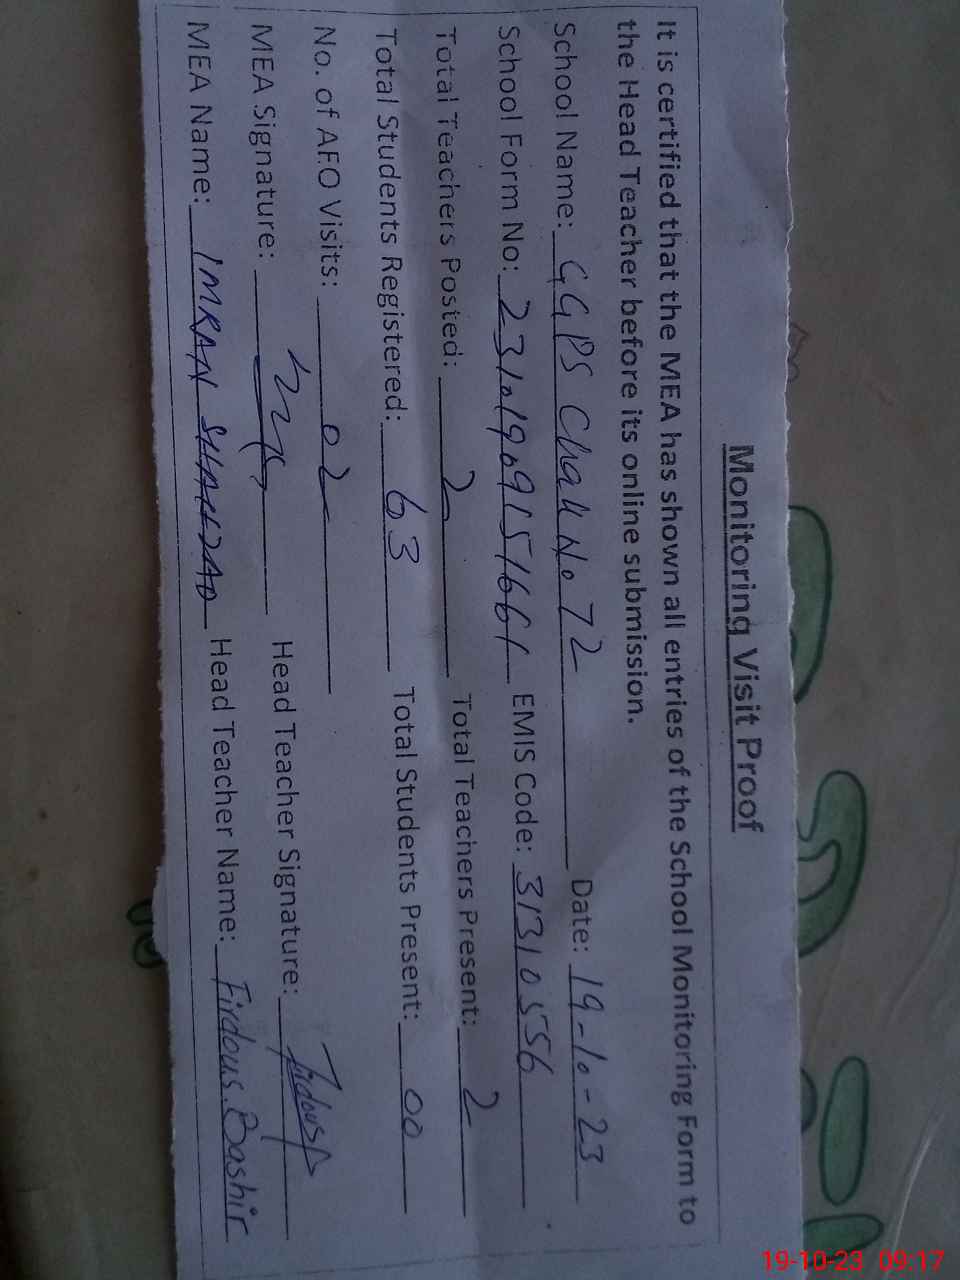 Monitoring Visit Proof
It is certified that the MEA has shown all entries of the School Monitoring Form to
the Head Teacher before its online submission.
School Name: GGPS Chak No 72 Date: 19-10-23
School Form No: 23101909151661 EMIS Code: 31310556
Total Teachers Posted: 2 Total Teachers Present: 2
Total Students Registered: 63 Total Students Present: 00
No. of AEO Visits: 02
MEA Signature: Head Teacher Signature: Firdous
MEA Name: IMRAN SHAHZAD Head Teacher Name: Firdous Bashir
19-10-23 09:17